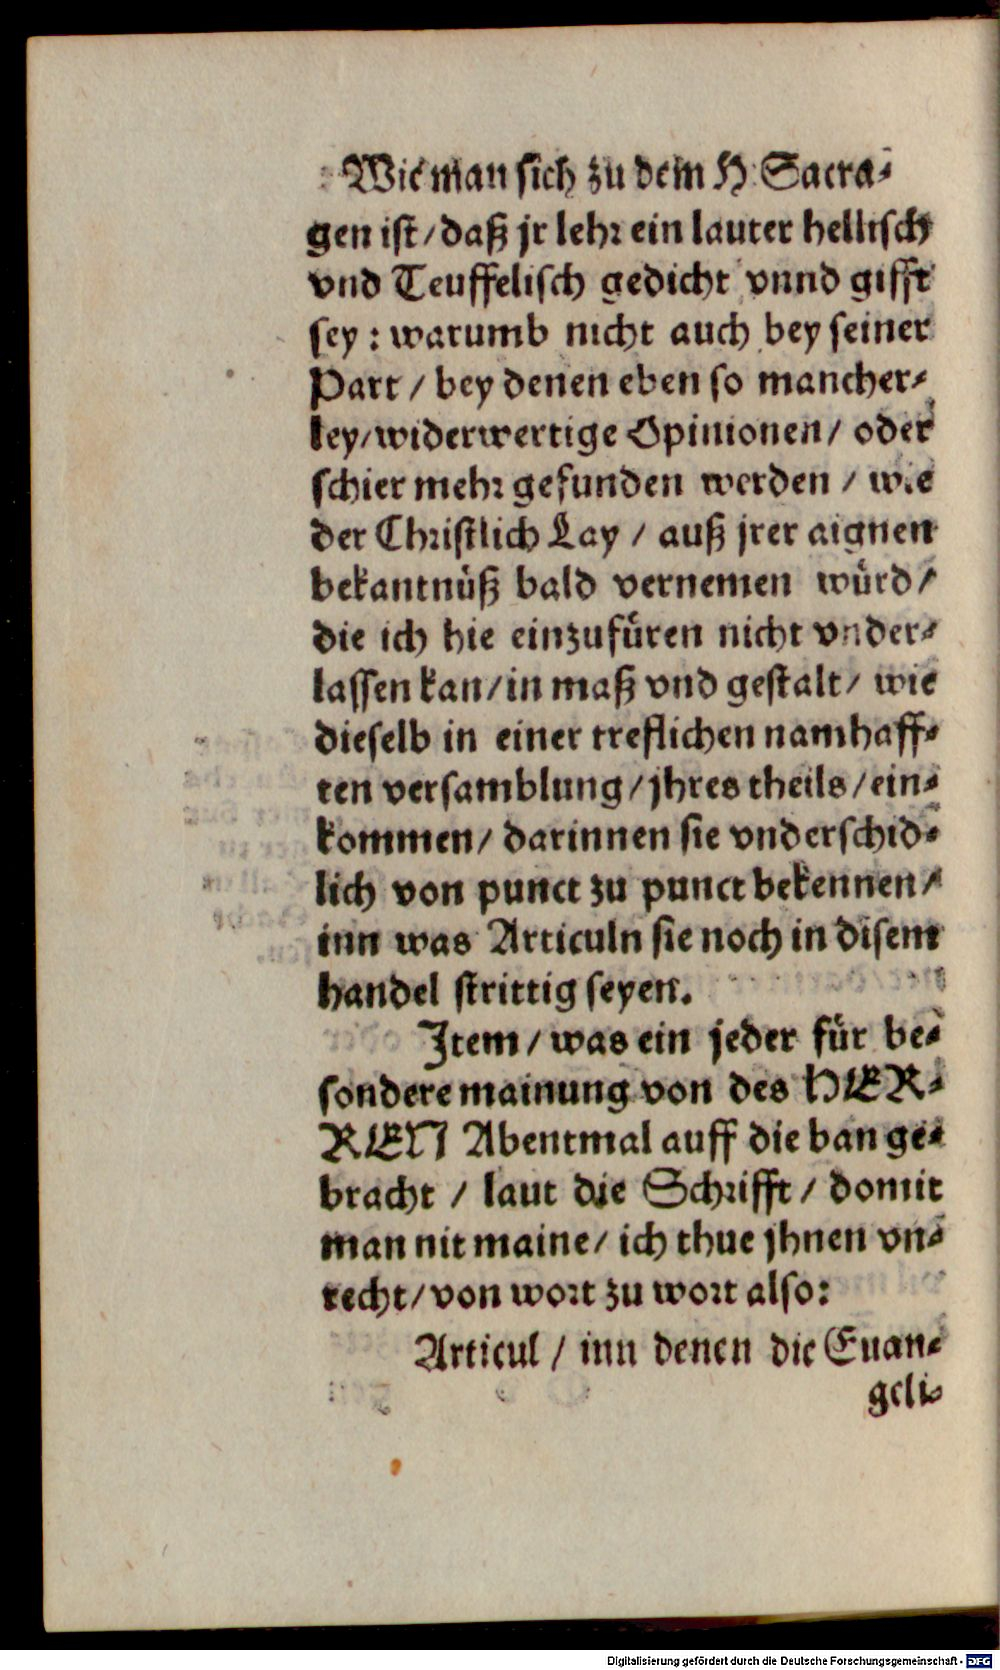 Wie man sich zu dem H. Sacra-
gen ist / daß jr lehr ein lauter hellisch
vnd Teuffelisch gedicht vnnd gifft
sey : warumb nicht auch bey seiner
Part / bey denen eben so mancher-
ley / widerwertige Opinionen / oder
schier mehr gefunden werden / wie
der Christlich Lay / auß jrer aignen
bekantnüß bald vernemen würd /
die ich hie einzufüren nicht vnder-
lassen kan / in maß vnd gestalt / wie
dieselb in einer treflichen namhaff-
ten versamblung / jhres theils / ein-
kommen / darinnen sie vnderschid-
lich von punct zu punct bekennen /
inn was Articuln sie noch in disem
handel strittig seyen.
Item / was ein jeder für be-
sondere mainung von des HER-
REN Abentmal auff die ban ge-
bracht / laut die Schrifft / domit
man nit maine / ich thue jhnen vn-
recht / von wort zu wort also:
Articul / inn denen die Euan-
geli-
Digitalisierung gefördert durch die Deutsche Forschungsgemeinschaft - DFG